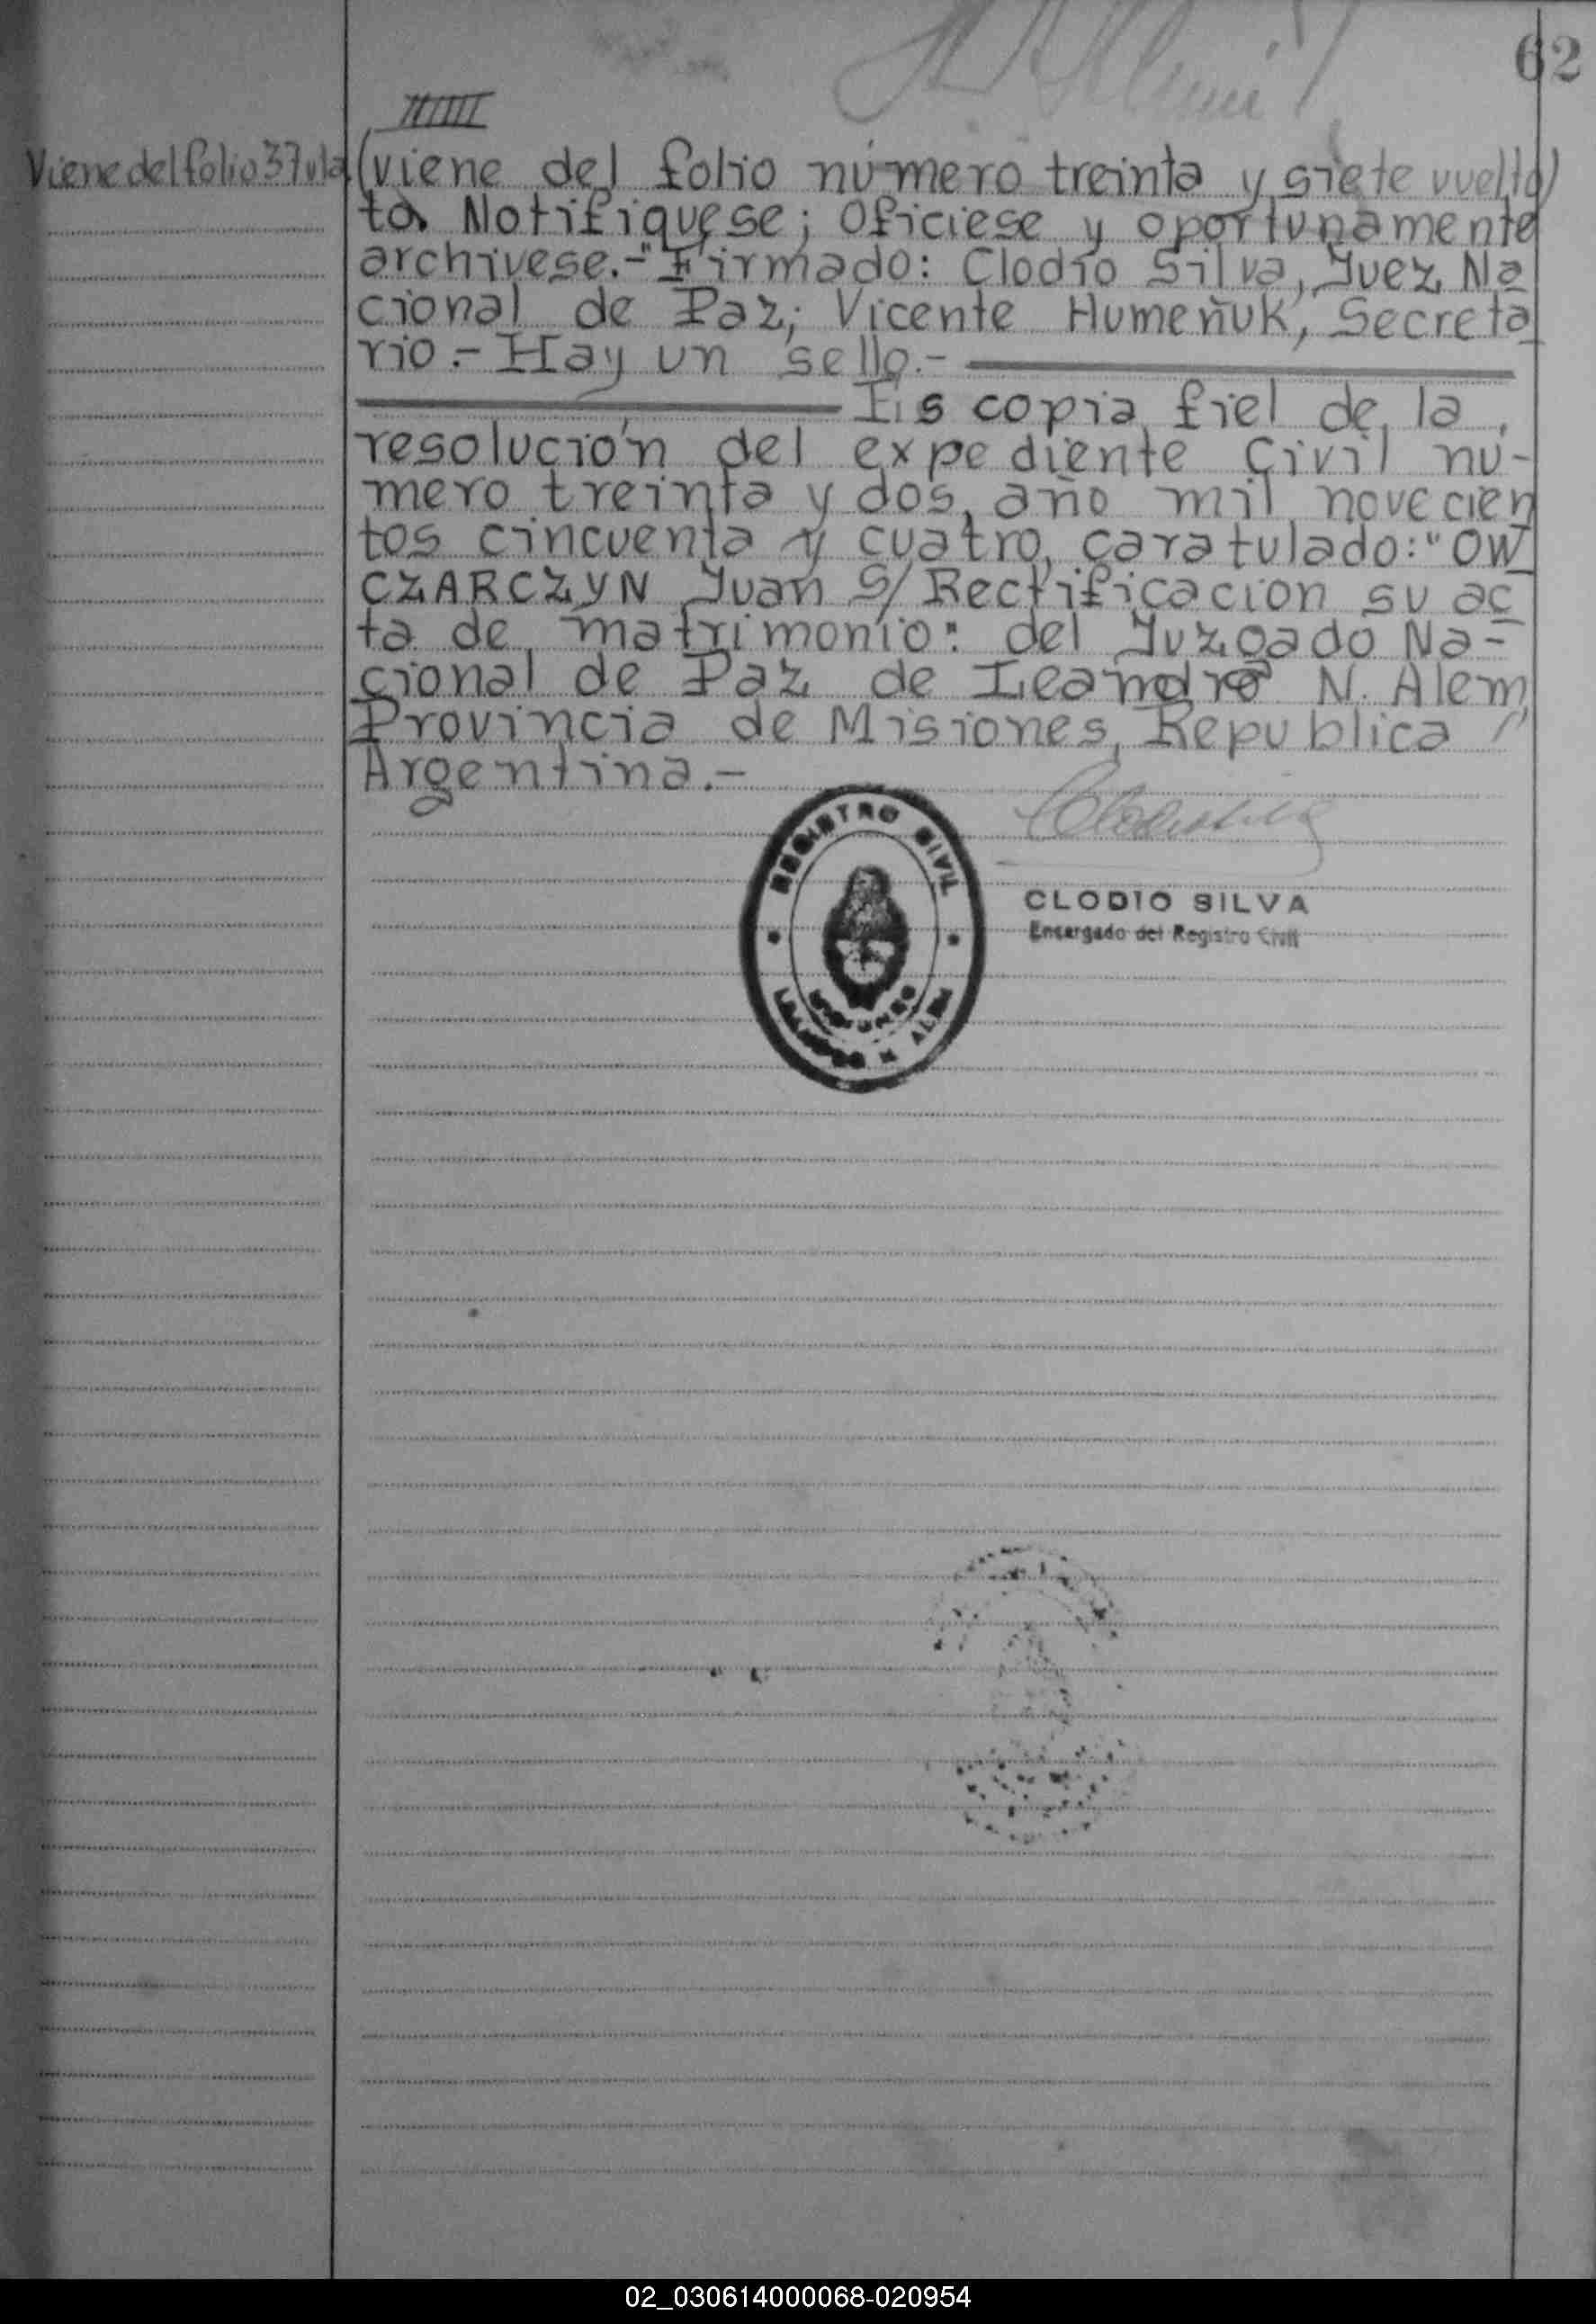 62
Viene del folio 37 vta.
(viene del folio número treinta y siete vuelto)
to. Notifiquese; Oficiese y oportunamente
archivese.-" Firmado: Clodio Silva, Juez Na
cional de Paz; Vicente Humeñuk, Secreta
rio.- Hay un sello.-
Es copia fiel de la
resolución del expediente Civil nu-
mero treinta y dos, año mil novecien
tos cincuenta y cuatro, caratulado: "OW
CZARCZYN Juan S/ Rectificacion su ac
ta de matrimonio": del Juzgado Na-
cional de Paz de Leandro N. Alem,
Provincia de Misiones, Republica
Argentina.-
REGISTRO CIVIL
MISIONES
LEANDRO N. ALEM
CLODIO SILVA
Encargado del Registro Civil
02_030614000068-020954